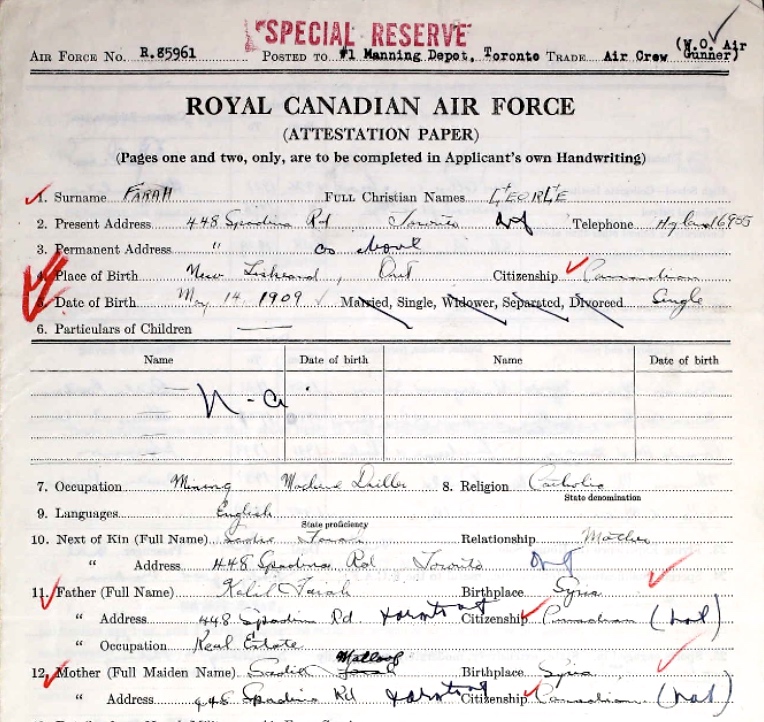 SPECIAL RESERVE
(W.O. Air
AIR FORCE NO. R.85961 POSTED TO #1 Manning Depot, Toronto TRADE Air Crew Gunner)
ROYAL CANADIAN AIR FORCE
(ATTESTATION PAPER)
(Pages one and two, only, are to be completed in Applicant's own Handwriting)
1. Surname FARAH FULL Christian Names GEORGE
2. Present Address 448 Spadina Rd Toronto Ont Telephone Hyland 6955
3. Permanent Address " as above
4. Place of Birth New Liskeard, Ont Citizenship Canadian
5. Date of Birth May 14, 1909 Married, Single, Widower, Separated, Divorced Single
6. Particulars of Children
Name Date of birth Name Date of birth
N-a
7. Occupation Mining Machine Driller 8. Religion Catholic
State denomination
9. Languages English
State proficiency
10. Next of Kin (Full Name) Sadie Farah Relationship Mother
" Address 448 Spadina Rd Toronto Ont
11. Father (Full Name) Kalil Farah Birthplace Syria
" Address 448 Spadina Rd Toronto Ont Citizenship Canadian (Nat)
" Occupation Real Estate
12. Mother (Full Maiden Name) Sadie Farah Malloof Birthplace Syria
" Address 448 Spadina Rd Toronto Ont Citizenship Canadian (Nat)